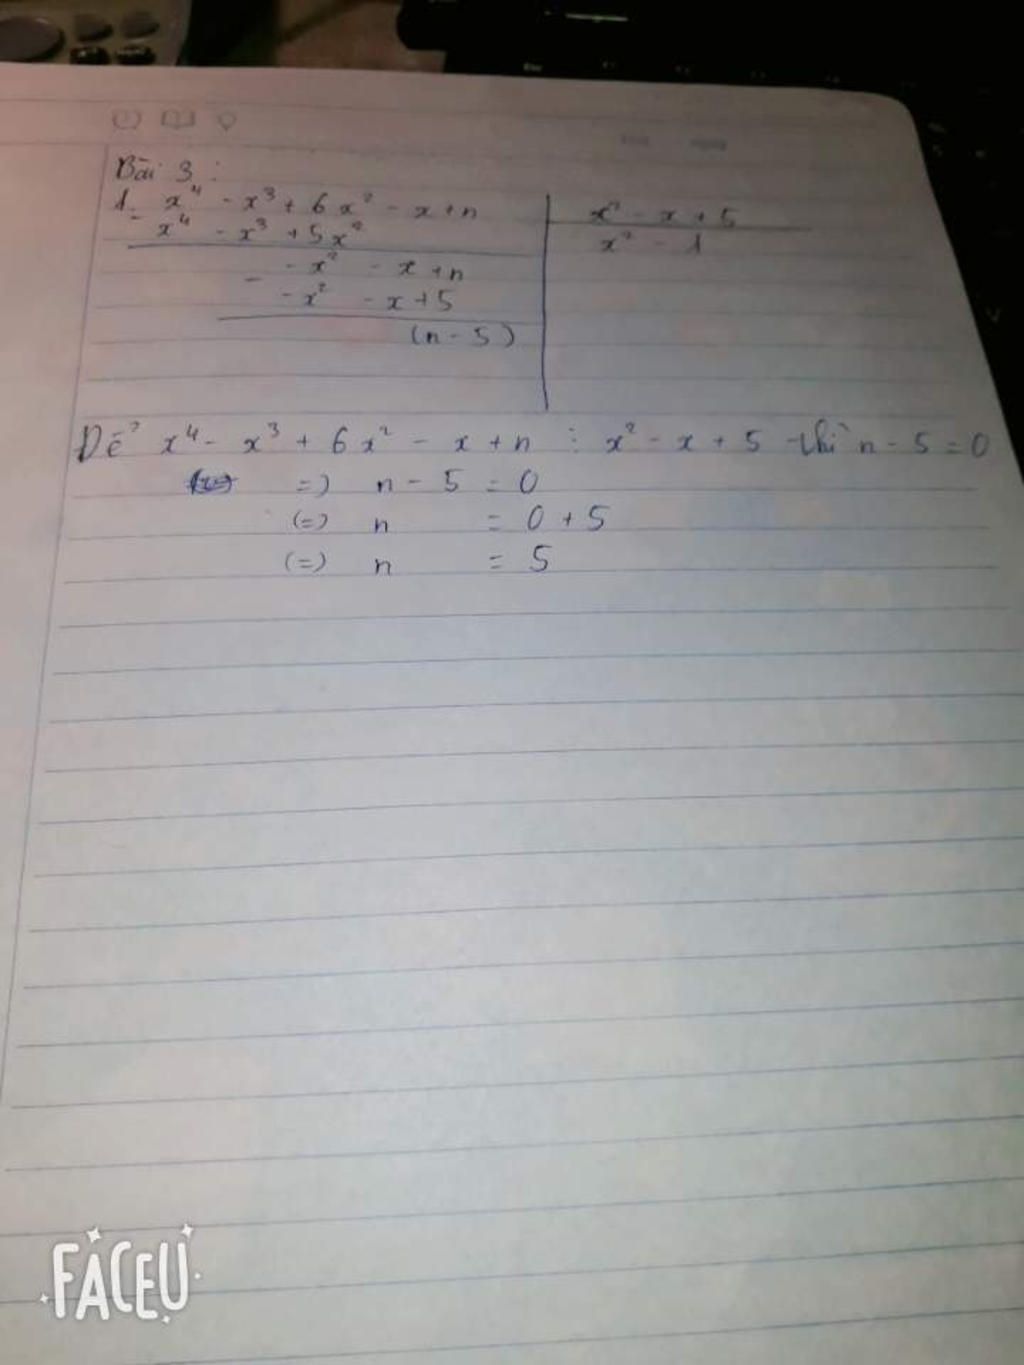 Bài 3 :
1. x⁴ - x³ + 6x² - x + n
x² - x + 5
- x⁴ - x³ + 5x²
x² - 1
- x² - x + n
- - x² - x + 5
(n - 5)
Để x⁴ - x³ + 6x² - x + n ⋮ x² - x + 5 thì n - 5 = 0
=) n - 5 = 0
(=) n = 0 + 5
(=) n = 5
FACEU